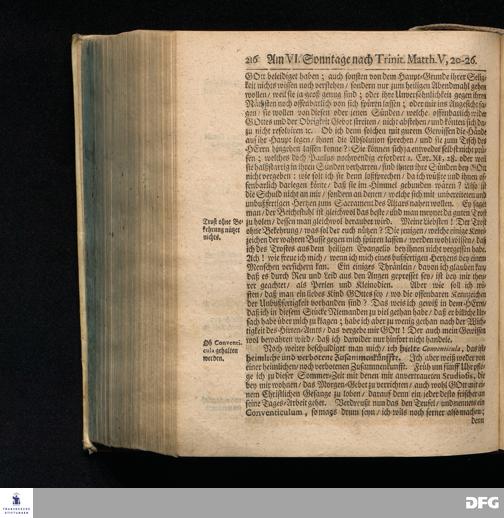 216 Am VI. Sonntage nach Trinit. Matth. V, 20-26.
GOtt beleidiget haben; auch sonsten von dem Haupt-Grunde ihrer Selig-
keit nichts wissen noch verstehen / sondern nur zum heiligen Abendmahl gehen
wollen / weil sie ja groß genug sind; oder ihre Unversöhnlichkeit gegen ihren
Nächsten noch offenbarlich von sich spüren lassen; oder mir ins Angesicht sa-
gen / sie wollen von diesen oder jenen Sünden / welche offenbarlich wider
GOttes und der Obrigkeit Gebot streiten / nicht abstehen / und könten sich da-
zu nicht resolviren ꝛc. Ob ich denn solchen mit gutem Gewissen die Hände
auf ihr Haupt legen / ihnen die Absolution sprechen / und sie zum Tisch des
HErrn hingehen lassen könne? Sie können sich ja entweder selbst nicht prü-
fen; welches doch Paulus nothwendig erfordert 1. Cor. XI, 28. oder weil
sie halßstarrig in ihren Sünden verharren / sind ihnen ihre Sünden bey GOtt
nicht vergeben; wie solt ich sie denn loßsprechen / da ich wüßte und ihnen of-
fenbarlich darlegen könte / daß sie im Himmel gebunden wären? Also ist
die Schuld nicht an mir / sondern an denen / welche sich mit unbereiteten und
unbußfertigen Hertzen zum Sacrament des Altars nahen wollen. Ey saget
man / der Beichtstuhl ist gleichwol das beste / und man meynet da guten Trost
Trost ohne Be- zu holen / dessen man gleichwol beraubet wird. Meine Liebsten! Der Trost
kehrung nützet ohne Bekehrung / was sol der euch nützen? Die jenigen / welche einige Kenn-
nichts. zeichen der wahren Busse gegen mich spüren lassen / werden wohl wissen / daß
ich des Trostes aus dem heiligen Evangelio bey ihnen nicht vergessen habe.
Ach! wie freue ich mich / wenn ich mich eines bußfertigen Hertzens bey einem
Menschen versichern kan. Ein einiges Thränlein / davon ich glauben kan /
daß es durch Reu und Leid aus den Augen gepresset sey / ist bey mir theu-
rer geachtet / als Perlen und Kleinodien. Aber wie soll ich wi-
ssen / daß man ein liebes Kind GOttes sey / wo die offenbaren Kennzeichen
der Unbußfertigkeit vorhanden sind? Das weis ich gewiß in dem HErrn /
daß ich in diesem Stücke Niemanden zu viel gethan habe / daß er billiche Ur-
sach habe über mich zu klagen; habe ich aber zu wenig gethan nach der Wich-
tigkeit des Hirten-Amts / das vergebe mir GOtt! Der auch mein Gewissen
wol bewahren wird / daß ich darwider nur hinfort nicht handele.
Ob Conventi- Noch weiter beschuldiget man mich / ich hielte Conventicula, das ist
cula gehalten heimliche und verbotene Zusammenkünffte. Ich aber weiß weder von
werden. einer heimlichen / noch verbotenen Zusammenkunfft. Früh um fünff Uhr pfle-
ge ich zu dieser Sommer-Zeit mit denen mir anvertraueten Studiosis, die
bey mir wohnen / das Morgen-Gebet zu verrichten / auch wohl GOtt mit ei-
nem Christlichen Gesange zu loben / darauf denn ein jeder desto frischer an
seine Tages-Arbeit gehet. Verdreust nun das den Teufel / und nennets ein
Conventiculum, so mags drum seyn / ich wils noch ferner also machen;
denn
FRANCKESCHE
STIFTUNGEN
DFG